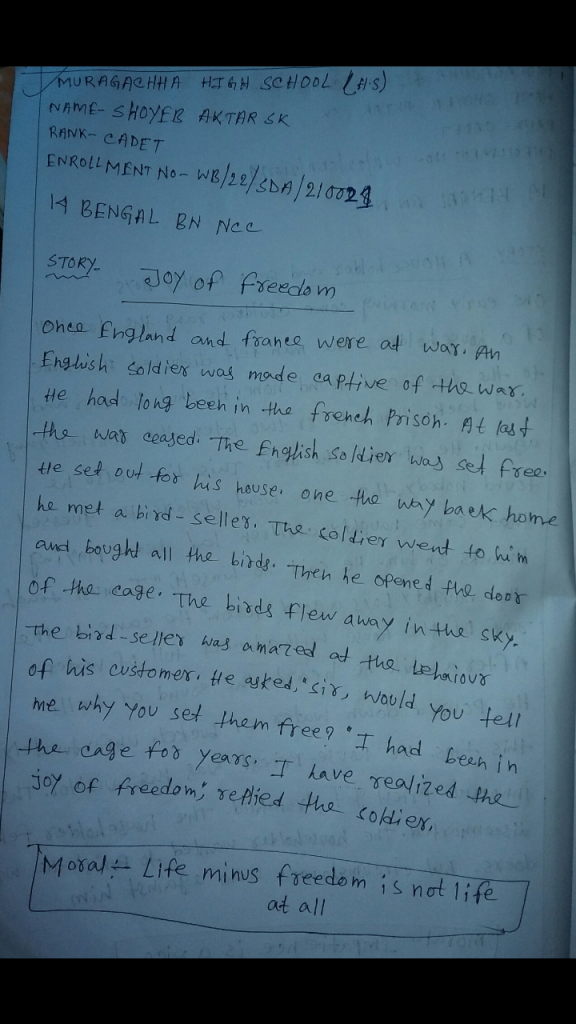 MURAGACHHA HIGH SCHOOL (H.S)
NAME- SHOYEB AKTAR SK
RANK- CADET
ENROLLMENT No- WB/22/SDA/210021
14 BENGAL BN NCC
STORY-
Joy of freedom
Once England and france were at war. An
English soldier was made captive of the war.
He had long been in the french Prison. At last
the war ceased. The English soldier was set free.
He set out for his house. one the way back home
he met a bird-seller. The soldier went to him
and bought all the birds. Then he opened the door
of the cage. The birds flew away in the sky.
The bird-seller was amazed at the behaiour
of his customer. He asked, "sir, would you tell
me why you set them free? "I had been in
the cage for years. I have realized the
joy of freedom", replied the soldier.
Moral:- Life minus freedom is not life
at all